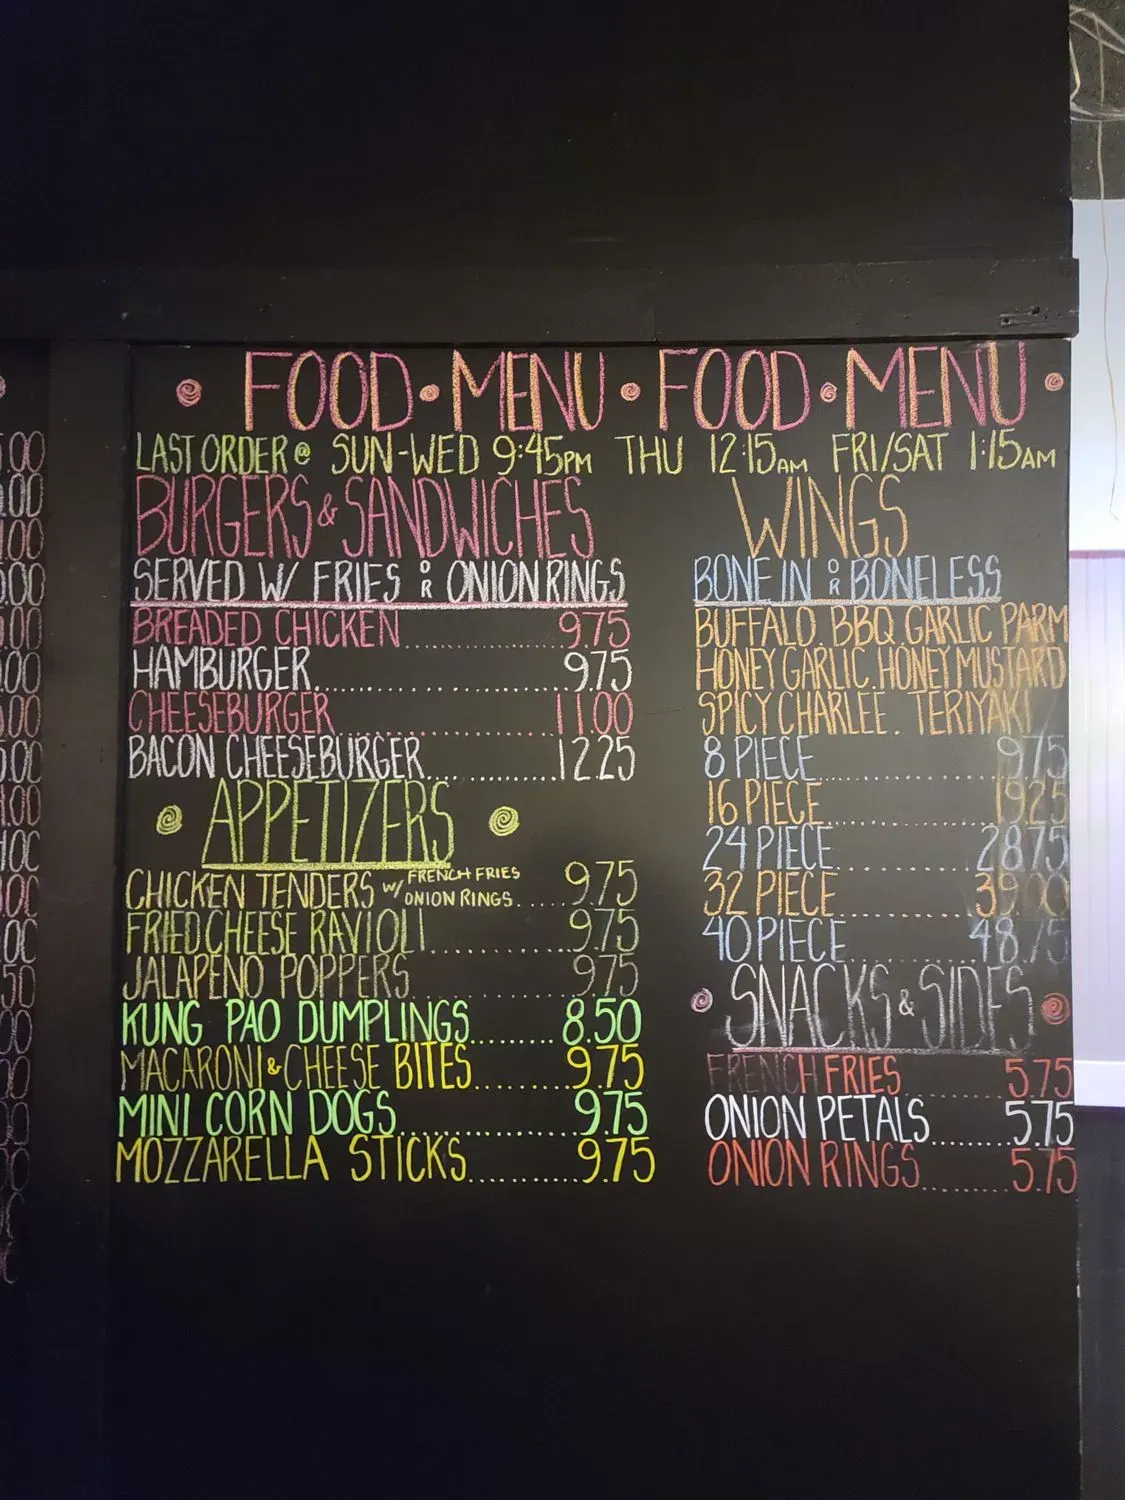 FOOD • MENU • FOOD • MENU •
LAST ORDER @ SUN-WED 9:45PM THU 12:15AM FRI/SAT 1:15AM
BURGERS & SANDWICHES
SERVED W/ FRIES OR ONION RINGS
BREADED CHICKEN 9.75
HAMBURGER 9.75
CHEESEBURGER 11.00
BACON CHEESEBURGER 12.25
APPETIZERS
CHICKEN TENDERS W/ FRENCH FRIES ONION RINGS 9.75
FRIED CHEESE RAVIOLI 9.75
JALAPEÑO POPPERS 9.75
KUNG PAO DUMPLINGS 8.50
MACARONI & CHEESE BITES 9.75
MINI CORN DOGS 9.75
MOZZARELLA STICKS 9.75
WINGS
BONE IN OR BONELESS
BUFFALO. BBQ. GARLIC PARM
HONEY GARLIC. HONEY MUSTARD
SPICY CHARLEE. TERIYAKI
8 PIECE 9.75
16 PIECE 19.25
24 PIECE 28.75
32 PIECE 39.00
40 PIECE 48.75
SNACKS & SIDES
FRENCH FRIES 5.75
ONION PETALS 5.75
ONION RINGS 5.75